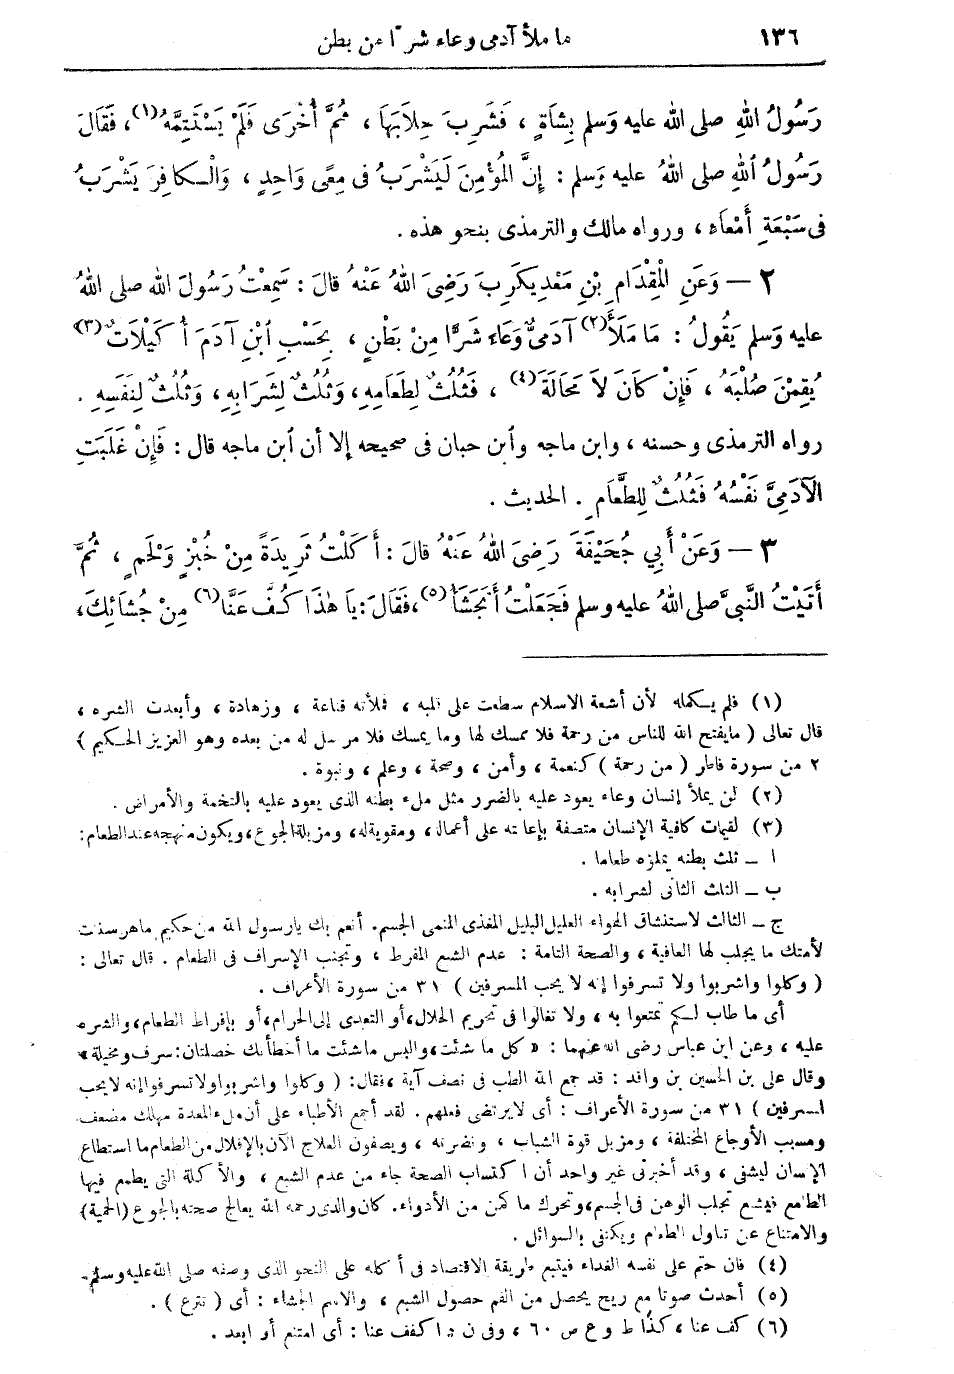 ١٣٦ ما ملأ آدمى وعاء شرًّا من بطن
رَسُولُ اللهِ صلى الله عليه وَسلم بِشَاةٍ ، فَشَرِبَ حِلَابَهَا ، ثُمَّ أُخْرَى فَلَمْ يَسْتَتِمَّهُ(١)، فَقَالَ
رَسُولُ ٱللهِ صلى اللهُ عليه وَسلم : إِنَّ المُؤْمِنَ لَيَشْرَبُ فى مِعًى وَاحِدٍ ، وَالْكافِرَ يَشْرَبُ
فى سَبْعَةِ أَمْعَاءَ ، ورواه مالك والترمذى بنحو هذه .
٢ — وَعَنِ الْمِقْدَامِ بْنِ مَعْدِيكَرِبَ رَضِىَ اللهُ عَنْهُ قالَ : سَمِعْتُ رَسُولَ الله صلى اللهُ
عليه وَسلم يَقُولُ : مَا مَلَأَ(٢) آدَمِىٌّ وَعَاءً شَرًّا مِنْ بَطْنٍ ، بِحَسْبِ ٱبْنِ آدَمَ أُكَيْلَاتٌ(٣)
يُقِمْنَ صُلْبَهُ ، فَإِنْ كَانَ لاَ مَحَالَةَ(٤) ، فَثُلُثٌ لِطَعَامِهِ، وَثُلُثٌ لِشَرَابِهِ، وَثُلُثٌ لِنَفَسِهِ .
رواه الترمذى وحسنه ، وابن ماجه وٱبن حبان فى صحيحه إلا أن ٱبن ماجه قال : فَإِنْ غَلَبَتِ
الْآدَمِىَّ نَفْسُهُ فَثُلُثٌ لِلطَّعَامِ . الحديث .
٣ — وَعَنْ أَبِي جُحَيْفَةَ رَضِىَ اللهُ عَنْهُ قالَ : أَكَلْتُ ثَرِيدَةً مِنْ خُبْزٍ وَلَحْمٍ ، ثُمَّ
أَتَيْتُ النَّبِىَّ صلى اللهُ عليه وسلم فَجَعَلْتُ أَتَجَشَّأُ(٥)، فَقَالَ: يا هٰذَا كُفَّ عَنَّا(٦) مِنْ جُشَائِكَ،
(١) فلم يكمله لأن أشعة الاسلام سطعت على قلبه ، فملأته قناعة ، وزهادة ، وأبعدت الشره ،
قال تعالى ( مايفتح الله للناس من رحمة فلا ممسك لها وما يمسك فلا مرسل له من بعده وهو العزيز الحكيم )
٢ من سورة فاطر ( من رحمة ) كنعمة ، وأمن ، وصحة ، وعلم ، ونبوة .
(٢) لن يملأ إنسان وعاء يعود عليه بالضرر مثل ملء بطنه الذى يعود عليه بالتخمة والأمراض .
(٣) لقيمات كافية الإنسان متصفة بإعانته على أعماله، ومقوية له، ومزيلة الجوع، ويكون منهجه عند الطعام:
ا ــ ثلث بطنه يملؤه طعاما .
ب ــ الثلث الثانى لشرابه .
ج ــ الثالث لاستنشاق الهواء العليل البليل المغذى المنمى الجسم. أنعم بك يارسول الله من حكيم ماهر سننت
لأمتك ما يجلب لها العافية ، والصحة التامة : عدم الشبع المفرط ، وتجنب الإسراف فى الطعام . قال تعالى :
( وكلوا واشربوا ولا تسرفوا إنه لا يحب المسرفين ) ٣١ من سورة الأعراف .
أى ما طاب لكم تمتعوا به ، ولا تغالوا فى تحريم الحلال، أو التعدى إلى الحرام، أو بإفراط الطعام، والشره
عليه ، وعن ابن عباس رضى الله عنهما : « كل ما شئت، والبس ماشئت ما أخطأتك خصلتان: سرف ومخيلة »
وقال على بن الحسين بن واقد : قد جمع الله الطب فى نصف آية ، فقال: ( وكلوا واشربوا ولا تسرفوا إنه لا يحب
المسرفين ) ٣١ من سورة الأعراف : أى لا يرتضى فعلهم . لقد أجمع الأطباء على أن ملء المعدة مهلك مضعف
ومسبب الأوجاع المختلفة ، ومزيل قوة الشباب ، ونضرته ، ويصفون العلاج الآن بالإقلال من الطعام ما استطاع
الإنسان ليشفى ، وقد أخبرنى غير واحد أن اكتساب الصحة جاء من عدم الشبع ، والأكلة التى يطمع فيها
الطامع فيشبع تجلب الوهن فى الجسم، وتحرك ما كمن من الأدواء. كان والدى رحمه الله يعالج صحته بالجوع (الحمية)
والامتناع عن تناول الطعام ويكتفى بالسوائل .
(٤) فان حتم على نفسه الغداء فيتبع طريقة الاقتصاد فى أكله على النحو الذى وصفه صلى الله عليه وسلم.
(٥) أحدث صوتا مع ريح يحصل من الفم حصول الشبع ، والاسم الجشاء : أى ( تترع ) .
(٦) كف عنا ، كذا ط و ع ص ٦٠ ، وفى ن د اكفف عنا : أى امتنع أو ابعد .